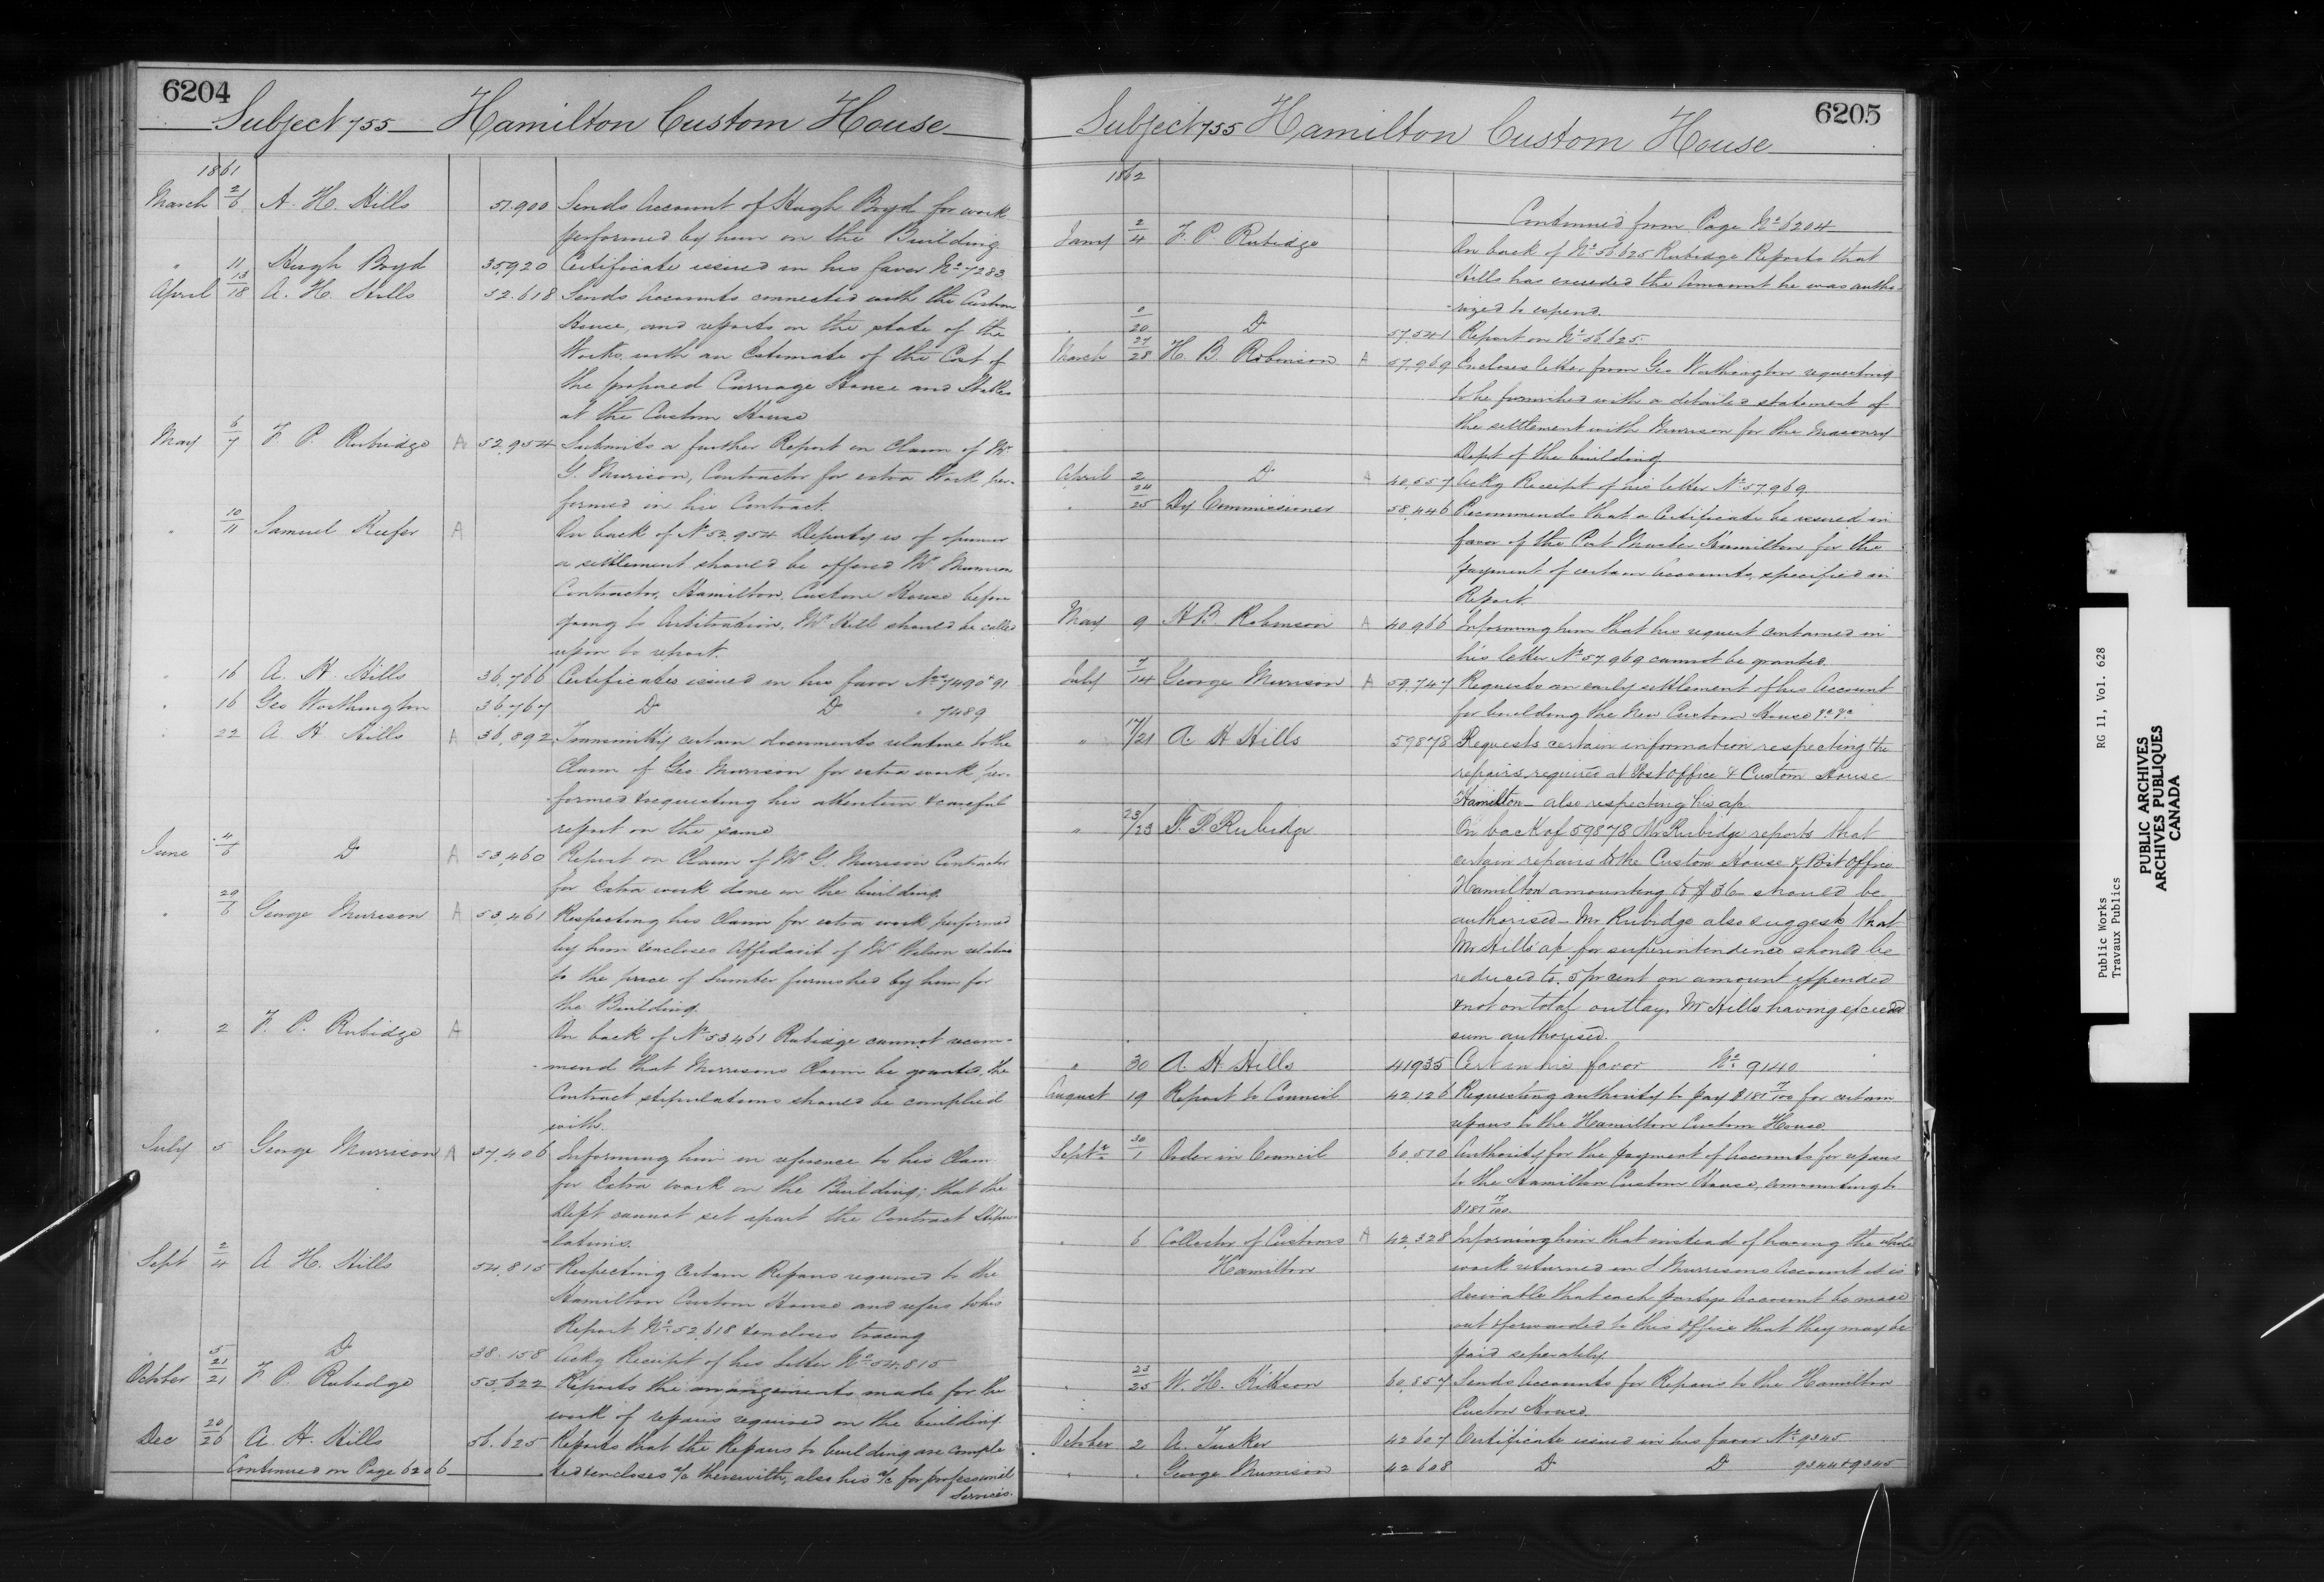 6204
Subject 755 Hamilton Custom House
1861
March 2/6 A. H. Hills 51,900 Sends Account of Hugh Boyd for work
performed by him on the Building.
" 11 Hugh Boyd 35,920 Certificate issued in his favor No 7283
April 13/18 A. H. Hills 52,618 Sends Accounts connected with the Custom
House, and reports on the state of the
Works, with an Estimate of the Cost of
the proposed Carriage House and Stables
at the Custom House
May 6/7 F. P. Rubidge A 52,954 Submits a further Report on Claim of Mr
G. Murison, Contractor for extra Work per-
formed in his Contract.
" 10/11 Samuel Keefer A On back of No 52,954 Deputy is of opinion
a settlement should be offered Mr Murison
Contractor, Hamilton, Custom House before
going to Arbitration, Mr Hill should be called
upon to report.
" 16 A. H. Hills 36,766 Certificates issued in his favor Nos 7490 & 91
" 16 Geo Worthington 36,767 Do Do " 7489
" 22 A. H. Hills A 36,892 Transmittg certain documents relative to the
Claim of Geo. Murison for extra work per-
-formed & requesting his attention & careful
report on the same
June 4/6 Do A 53,460 Report on Claim of Mr G. Murison Contractor
for Extra work done on the building.
" 29/6 George Murison A 53,461 Respecting his Claim for extra work performed
by him & encloses Affidavit of Mr Wilson relative
to the price of Lumber furnished by him for
the Building.
" 2 F. P. Rubidge A On back of No 53,461 Rubidge cannot recom-
-mend that Morrisons Claim be granted, the
Contract stipulations should be complied
with.
July 5 George Murrison A 37,406 Informing him in reference to his Claim
for Extra work on the Building; that the
Dept cannot set apart the Contract Stipu-
-lations.
Sept 2/4 A. H. Hills 54,815 Respecting Certain Repairs required to the
Hamilton Custom House and refers to his
Report No 52,618 & encloses tracing
" 5 Do 38,158 Ackg Receipt of his Letter No 54,815
October 21/21 F. P. Rubidge 55,622 Reports the arrangements made for the
work of repairs required on the building
Dec 20/26 A. H. Hills 56,625 Reports that the Repairs to building are comple
-ted & encloses a/c therewith, also his a/c for professional
Services.
Continued on Page 6206
6205
Subject 755 Hamilton Custom House
1862
Continued from Page No 6204
Jany 2/4 F. P. Rubidge On back of No 56,625 Rubidge Reports that
Hills has exceeded the Amount he was autho-
-rized to expend.
" 20 Do 57,541 Report on No 56,625.
March 27/28 H. B. Robinson A 57,969 Encloses letter from Geo Worthington requesting
to be furnished with a detailed statement of
the settlement with Murison for the Masonry
Dept of the building
April 2 Do A 40,557 Ackg Receipt of his letter No 57,969
" 24/25 Dy Commissioner 58,446 Recommends that a Certificate be issued in
favor of the Post Master Hamilton for the
payment of certain Accounts, specified in
Report.
May 9 H B. Robinson A 40,966 Informing him that his request contained in
his letter No 57,969 cannot be granted.
July 7/14 George Murison A 59,747 Requests an early settlement of his Account
for building the New Custom House &c &c
" 17/21 A H Hills 59878 Requests certain information respecting the
repairs required at Post Office & Custom House
Hamilton - also respecting his a/c
" 23/23 F. P. Rubidge On back of 59878 Mr Rubidge reports that
certain repairs to the Custom House & Post Office
Hamilton amounting to $36 should be
authorised - Mr Rubidge also suggests that
Mr Hills a/c for superintendence should be
reduced to 5 pr cent on amount expended
& not on total outlay, Mr Hills having exceeded
sum authorised.
" 30 A. H Hills 41935 Cert in his favor No 9140
August 19 Report to Council 42,126 Requesting authority to pay $187 17/100 for certain
repairs to the Hamilton Custom House.
Septr 30/1 Order in Council 60,510 Authority for the payment of Accounts for repairs
to the Hamilton Custom House, amounting to
$187 17/100.
" 6 Collector of Customs Hamilton A 42,328 Informing him that instead of having the whole
work returned in J Murrisons Account it is
desirable that each partys Account be made
out & forwarded to this Office that they may be
paid seperately
" 23/25 W. H. Kittson 60,857 Sends Accounts for Repairs to the Hamilton
Custom House.
October 2 A. Tucker 42607 Certificate issued in his favor No 9345
" " George Murrison 42608 Do Do 9344 & 9345
Public Works RG 11, Vol. 628
Travaux Publics
PUBLIC ARCHIVES
ARCHIVES PUBLIQUES
CANADA